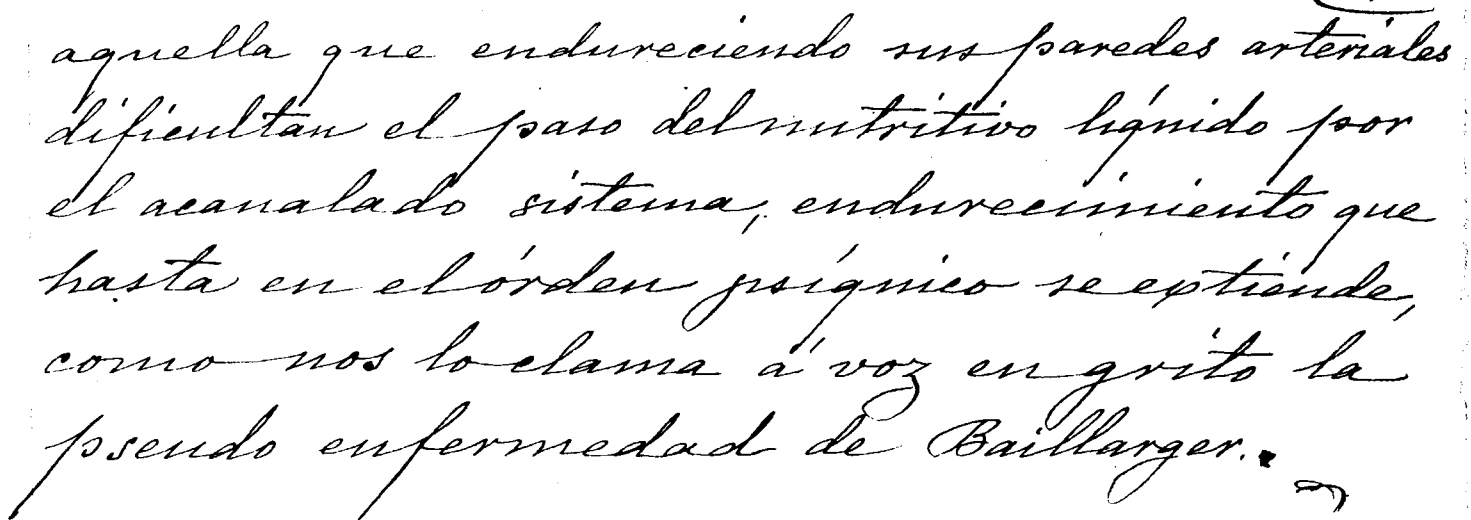 aquella que endureciendo sus paredes arteriales
dificultan el paso del nutritivo líquido por
el acanalado sistema, endurecimiento que
hasta en el órden psíquico se extiende,
como nos lo clama á voz en grito la
pseudo enfermedad de Baillarger.